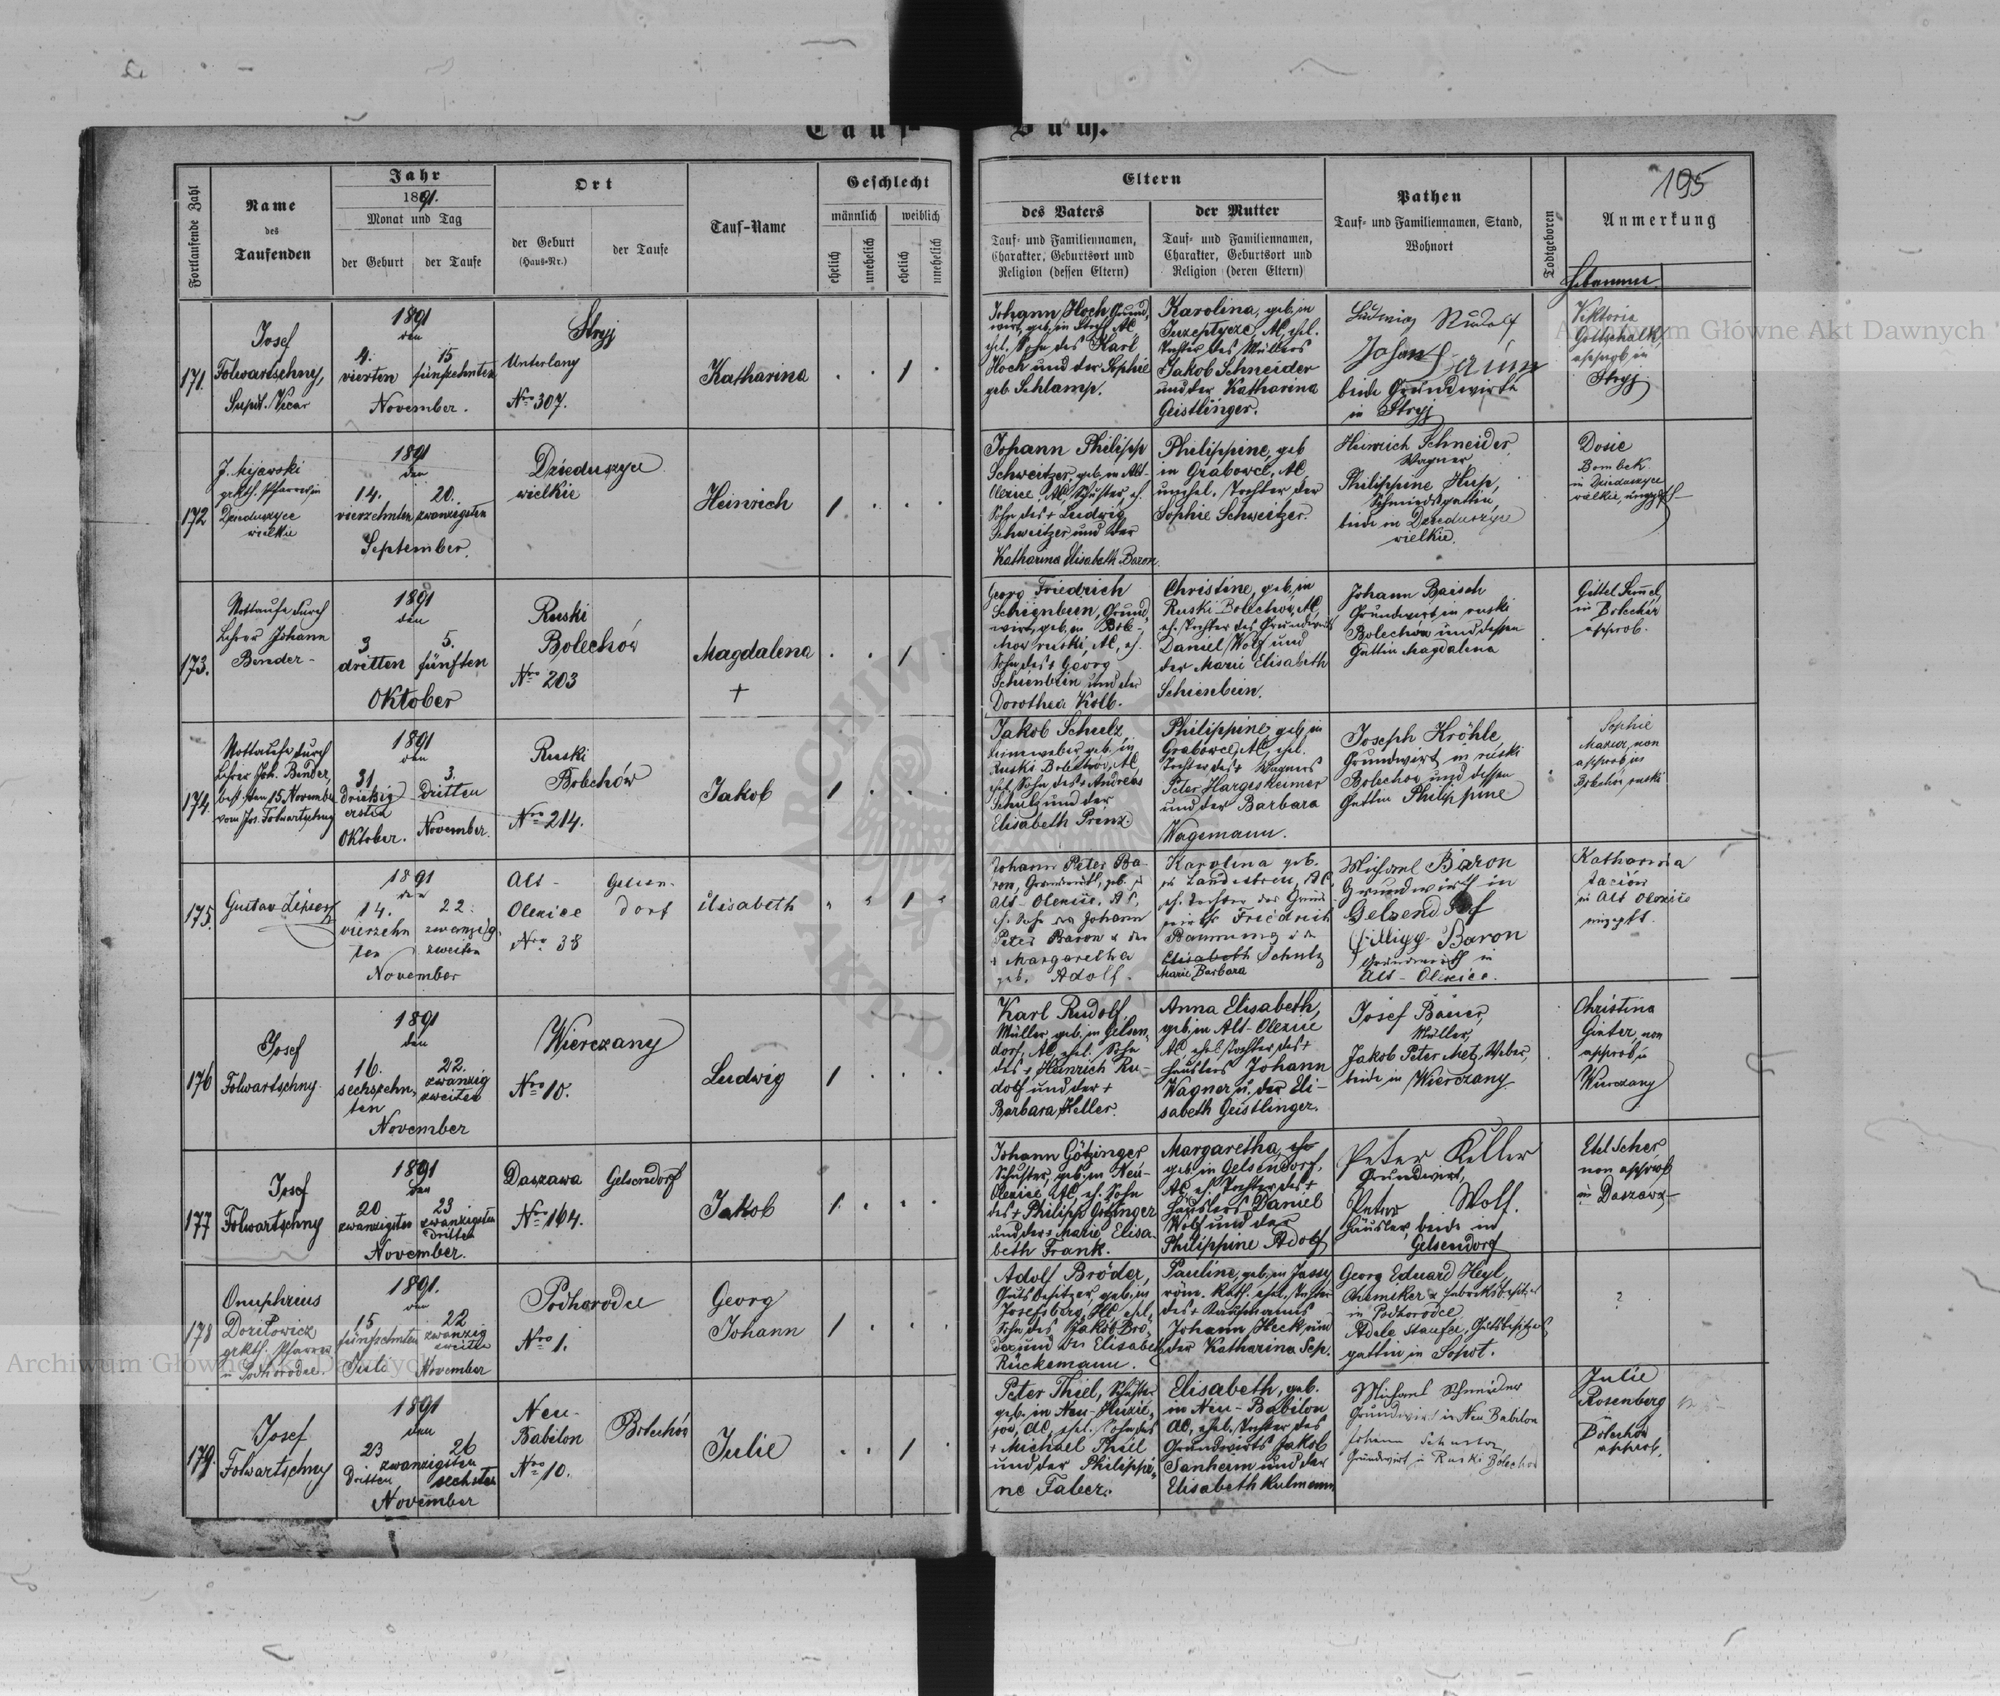 Tauf-Buch.
195
Fortlaufende Zahl
Name
des
Taufenden
Jahr
1891.
Monat und Tag
der Geburt
der Taufe
Ort
der Geburt
(Haus-Nr.)
der Taufe
Tauf-Name
Geschlecht
männlich
weiblich
ehelich
unehelich
ehelich
unehelich
Eltern
des Vaters
Tauf- und Familiennamen,
Charakter, Geburtsort und
Religion (dessen Eltern)
der Mutter
Tauf- und Familiennamen,
Charakter, Geburtsort und
Religion (deren Eltern)
Pathen
Tauf- und Familiennamen, Stand,
Wohnort
Todtgeboren
Anmerkung
Hebamme
171.
Josef
Folwartschny,
Supt. Vicar
1891
den
4.
vierten
15
fünfzehnten
November.
Stryj
Unterlany
Nro 307.
Katharina
1
Johann Hoch, Grund-
wirt, geb. in Stryj, AC,
ehl. Sohn des Karl
Hoch und der Sophie
geb. Schlamp.
Karolina, geb. in
AC, ehel.
Tochter des Müllers
Jakob Schneider
und der Katharina
Geistlinger.
Ludwig Rudolf
Johann
beide Grundwirte
in Stryj
Viktoria
Gottschalk,
approb in
Stryj
172
J.
grkth. Pfarrer in
Dzieduszyce
wielkie
1891
den
14.
vierzehnten
20.
zwanzigsten
September.
Dzieduszyce
wielkie
Heinrich
1.
Johann Philipp
Schweitzer, geb. in Alt-
Olexice, AC, Schuster, eh.
Sohn des + Ludwig
Schweitzer und der
Katharina Elisabeth Baron.
Philippine, geb
in Grabowce, AC,
unehel. Tochter der
Sophie Schweitzer.
Heinrich Schneider,
Wagner
Philippine Hup,
Schmiedsgattin,
beide in Dzieduszyce
wielkie.
Dosie
Bombek
in Dzieduszyce
wielkie,
173.
Nottaufe durch
Lehrer Johann
Binder -
1891
den
3
dritten
5.
fünften
Oktober
Ruski
Bolechów
Nro 203
Magdalena
+
1
Georg Friedrich
Schienbein, Grund-
wirt, geb. in Bole-
chow ruski, AC, eh.
Sohn des + Georg
Schienbein und der
Dorothea Kolb.
Christine, geb. in
Ruski Bolechów, AC,
eh. Tochter des Grundwirts
Daniel Wolf und
der Marie Elisabeth
Schienbein.
Johann Baisch
Grundwirt in ruski
Bolechów und dessen
Gattin Magdalena
Gittel
in Bolechów
approb.
174.
Nottaufe durch
Lehrer Joh. Binder,
best. den 15. November
vom Jos. Folwartschny
1891
den
31.
Dreißig
ersten
Oktober.
3.
dritten
November.
Ruski
Bolechów
Nro 214.
Jakob
1
Jakob Schulz
Leinweber, geb. in
Ruski Bolechów, AC,
ehl. Sohn des + Andreas
Schulz und der
Elisabeth Prinz.
Philippine, geb. in
Grabowce, AC, ehel.
Tochter des + Wagners
Peter Hargesheimer
und der Barbara
Wagemann.
Joseph Kröhle,
Grundwirt in ruski
Bolechow und dessen
Gattin Philippine
Sophie
non
approb in
Bolechow ruski
175.
Gustav
1891
den
14.
vierzehn
ten
22.
zwanzig
zweiten
November
Alt-
Olexice
Nro 38
Gelsen-
dorf
Elisabeth
1
Johann Peter Ba-
ron, Grundwirth, geb. in
Alt-Olexice, AC,
eh. Sohn des Johann
Peter Baron u. der
+ Margaretha
geb. Adolf.
Karolina geb.
in Landestreu, AC,
eh. Tochter des Grund-
wirts Friedrich
Baumung u. der
Elisabeth Schulz
Marie Barbara
Michael Baron
Grundwirth in
Gelsendorf
Philipp Baron
Grundwirth in
Alt-Olexice.
Katharina
in Alt Olexice
176
Josef
Folwartschny.
1891
den
16.
sechszehn-
ten
22.
zwanzig
zweiten
November
Wierczany
Nro 10.
Ludwig
1
Karl Rudolf,
Müller, geb. in Gelsen-
dorf, AC, ehel. Sohn
des + Heinrich Ru-
dolf und der +
Barbara Heller.
Anna Elisabeth,
geb. in Alt-Olexice
AC, ehel. Tochter des +
Häuslers Johann
Wagner u. der Eli-
sabeth Geistlinger.
Josef Bauer,
Müller,
Jakob Peter Metz, Weber,
beide in Wierczany
Christina
Ginter, non
approb in
Wierczany
177
Josef
Folwartschny
1891
den
20
zwanzigsten
23
zwanzigsten
dritten
November.
Daszawa
Nro 164.
Gelsendorf
Jakob
1
Johann Götzinger
Schuster, geb. in Neu-
Olexice, AC, eh. Sohn
des + Philipp Götzinger
und der + Marie Elisa-
beth Frank.
Margaretha,
geb. in Gelsendorf,
AC, eh. Tochter des +
Häuslers Daniel
Wolf und der
Philippine Adolf
Peter Keller
Grundwirt,
Peter Wolf.
Häusler, beide in
Gelsendorf
Etel Scher,
non approb
in Daszawa
178
Onuphrius
Doriłowicz
grkth. Pfarrer
in Podhorodce.
1891.
den
15
fünfzehnten
Juli
22
zwanzig
zweiten
November
Podhorodce
Nro 1.
Georg
Johann
1
Adolf Bröder,
Gutsbesitzer, geb. in
Josefsberg, AC, ehel.
Sohn des Jakob Brö-
der und der Elisabeth
Rückemann.
Pauline, geb. in Jassy,
röm. Kath. ehel. Tochter
des + Kaufmanns
Johann Heck und
der Katharina Sep.
Georg Eduard Heyl,
Chemiker u. Fabriksbesitzer
in Podhorodce
Adele Staufer, Gutsbesitzers
gattin, in Sopot.
?
179.
Josef
Folwartschny
1891
den
23
zwanzigsten
Dritten
26
sechsten
November
Neu-
Babilon
Nro 10.
Bolechów
Julie
1
Peter Thiel, Schuster
geb. in Neu-
AC, ehel. Sohn des
+ Michael Thiel
und der Philippi-
ne Faber.
Elisabeth, geb.
in Neu-Babilon
AC, ehel. Tochter des
Grundwirts Jakob
Sanheim und der
Elisabeth Kulmann
Michael Schneider
Grundwirt in Neu Babilon
Johann Schuster,
Grundwirt in Ruski Bolechow
Julie
Rosenberg
in
Bolechów
approb.
Archiwum Główne Akt Dawnych
Archiwum Główne Akt Dawnych